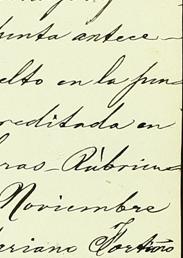 punta antece-
elto en la jun-
reditada en
ras-Rúbrica-
Noviembre
ariano Fortuño